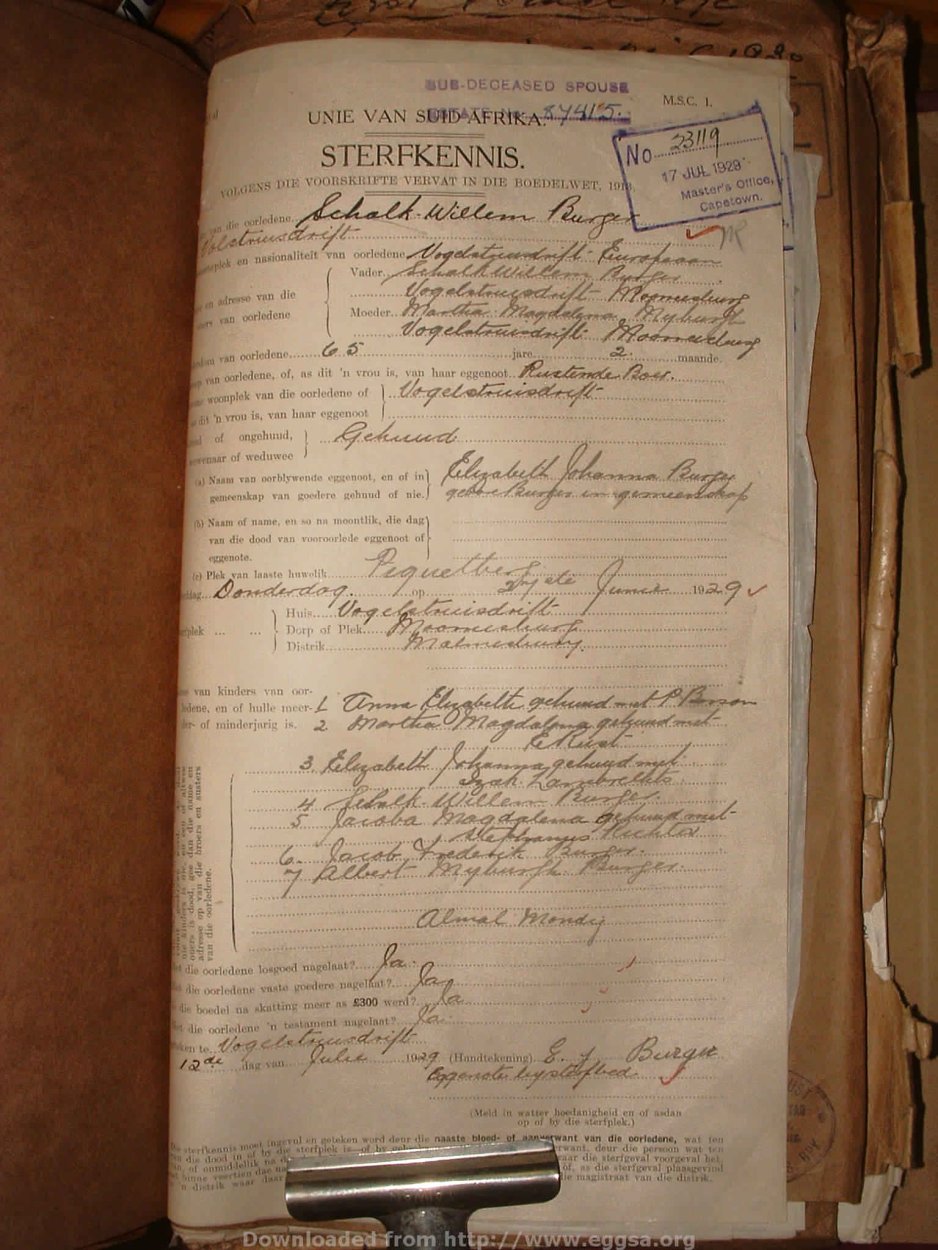 SUB-DECEASED SPOUSE
ESTATE No. 87415.
M.S.C. 1.
UNIE VAN SUID-AFRIKA.
STERFKENNIS.
VOLGENS DIE VOORSKRIFTE VERVAT IN DIE BOEDELWET, 1913,
No 23119
17 JUL 1929
Master's Office,
Capetown.
van die oorledene. Schalk Willem Burger
en nasionaliteit van oorledene Vogelstruisdrift European
Vader Schalk Willem Burger
Vogelstruisdrift Moorreesburg
en adresse van die
van oorledene
Moeder Martha Magdalena Myburgh
Vogelstruisdrift Moorreesburg
van oorledene 65 jare 2 maande.
van oorledene, of, as dit 'n vrou is, van haar eggenoot Rustende Boer.
woonplek van die oorledene of
dit 'n vrou is, van haar eggenoot
Vogelstruisdrift
of ongehuud,
of weduwee
Gehuud
(a) Naam van oorblywende eggenoot, en of in
gemeenskap van goedere gehuud of nie.
Elizabeth Johanna Burger
gebore Burger in gemeenskap
(b) Naam of name, en so na moontlik, die dag
van die dood van vooroorlede eggenoot of
eggenote.
(c) Plek van laaste huwelik Piquetberg
Donderdag op 27ste Junie 1929
Huis Vogelstruisdrift
Dorp of Plek Moorreesburg
Distrik Malmesbury
van kinders van oor-
ledene, en of hulle meer-
der- of minderjarig is.
1. Anna Elizabeth gehuud met P
2. Martha Magdalena gehuud met
E Rust
3. Elizabeth Johanna gehuud met
Izak Lambrechts
4 Schalk Willem Burger
5 Jacoba Magdalena gehuud met
Stephanus Richter
6. Jacob Frederik Burger.
7 Albert Myburgh Burger
Almal Mondig
die oorledene losgoed nagelaat? Ja
die oorledene vaste goedere nagelaat? Ja
die boedel na skatting meer as £300 werd? Ja
die oorledene 'n testament nagelaat? Ja
te Vogelstruisdrift
12de dag van Julie 1929 (Handtekening) E. J. Burger
Eggenote by sterfbed
(Meld in watter hoedanigheid en of asdan
op of by die sterfplek.)
sterfkennis moet ingevul en geteken word deur die naaste bloed- of aanverwant van die oorledene, wat ten
deur die persoon wat ten
waar die sterfgeval voorgeval het,
of, as die sterfgeval plaasgevind
die magistraat van die distrik.
Downloaded from http://www.eggsa.org